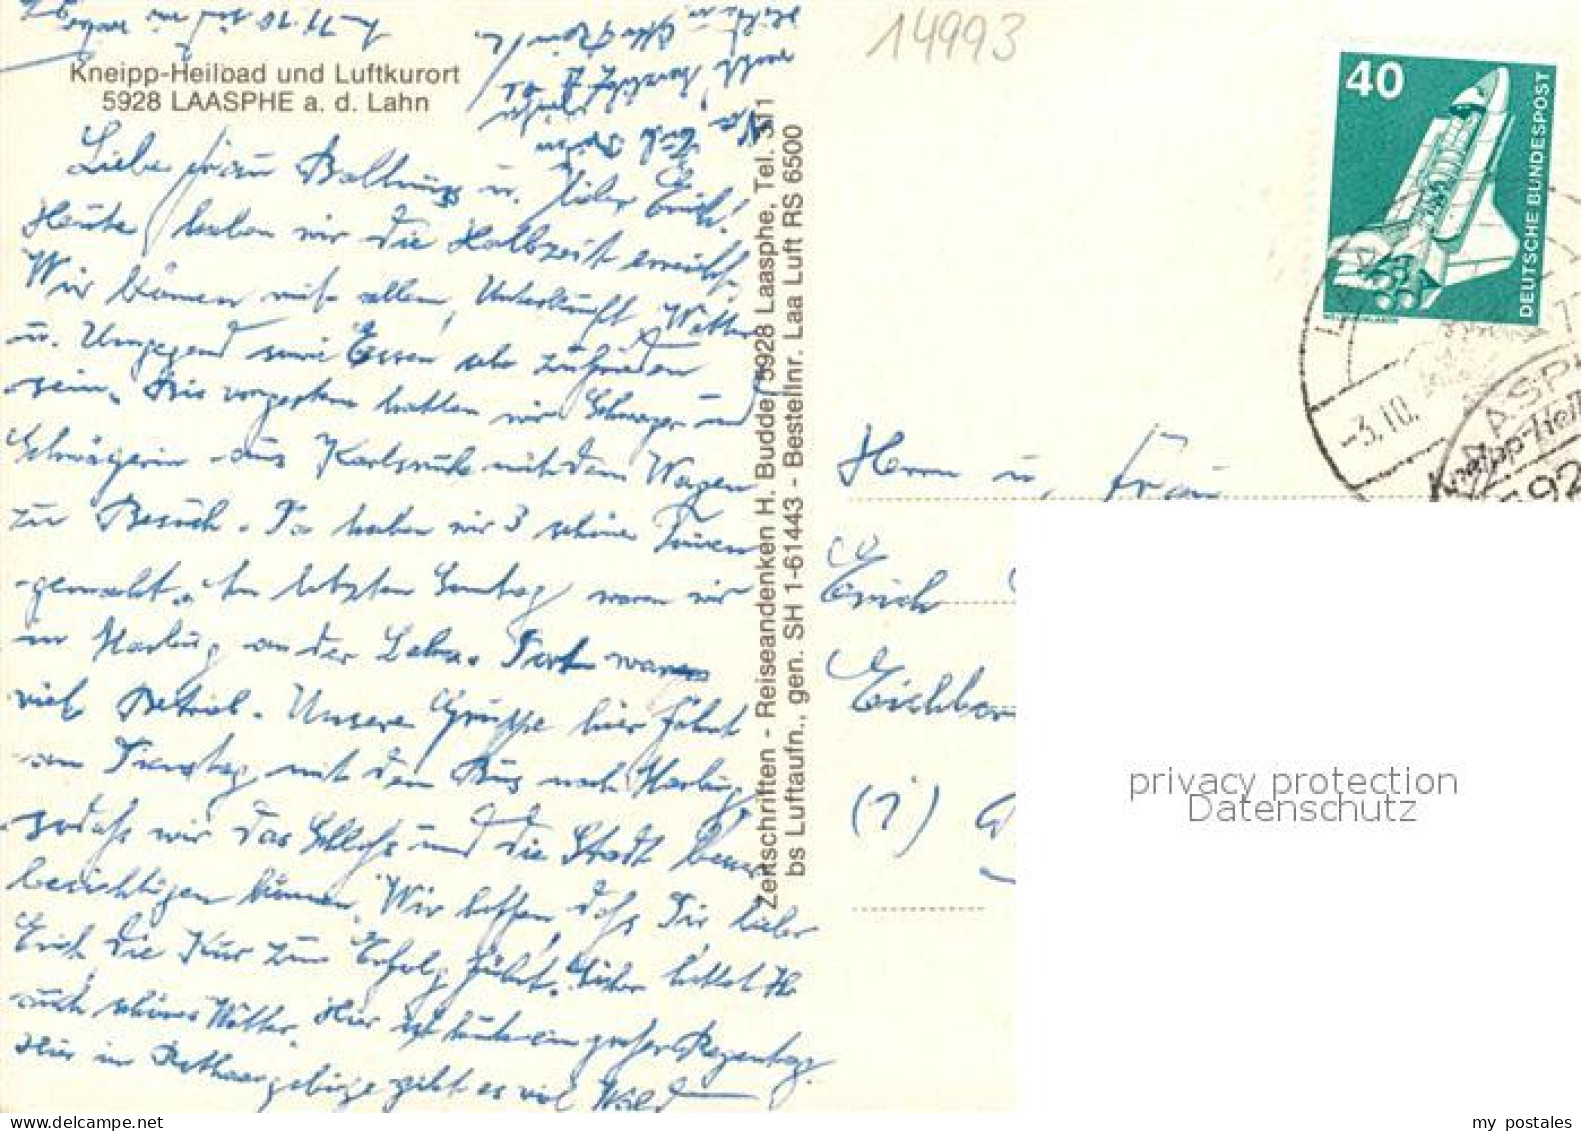 14993
Kneipp-Heilbad und Luftkurort
5928 LAASPHE a. d. Lahn
Liebe Frau Ballnuss u. lieber Erich!
Heute haben wir die Halbzeit erreicht.
Wir können mit allem, Unterkunft, Wetter
u. Umgegend sowie Essen sehr zufrieden
sein. Bis vorgestern hatten wir Schwager und
Schwägerin aus Karlsruhe mit dem Wagen
zu Besuch. Da haben wir 3 schöne Touren
gemacht. Am letzten Sonntag waren wir
in Marburg an der Lahn. Dort war
viel Betrieb. Unsere Gruppe hier fährt
am Dienstag mit dem Bus nach Marburg
sodaß wir das Schloß und die Stadt besser
besichtigen können. Wir hoffen, daß Dir lieber
Erich die Kur zum Erfolg führt. Sicher hattet Ihr
auch schönes Wetter. Hier ist heute ein großer Regentag.
Hier im Rothaargebirge gibt es viel Wald
Zeitschriften - Reiseandenken H. Budde, 5928 Laasphe, Tel. 311
bs Luftaufn., gen. SH 1-61443 - Bestellnr. Laa Luft RS 6500
40
DEUTSCHE BUNDESPOST
-3.10.
LAASPHE
Kneipp-Heil
592
Herrn u. Frau
Erich
Eichbor
(1)
privacy protection
Datenschutz
my postales